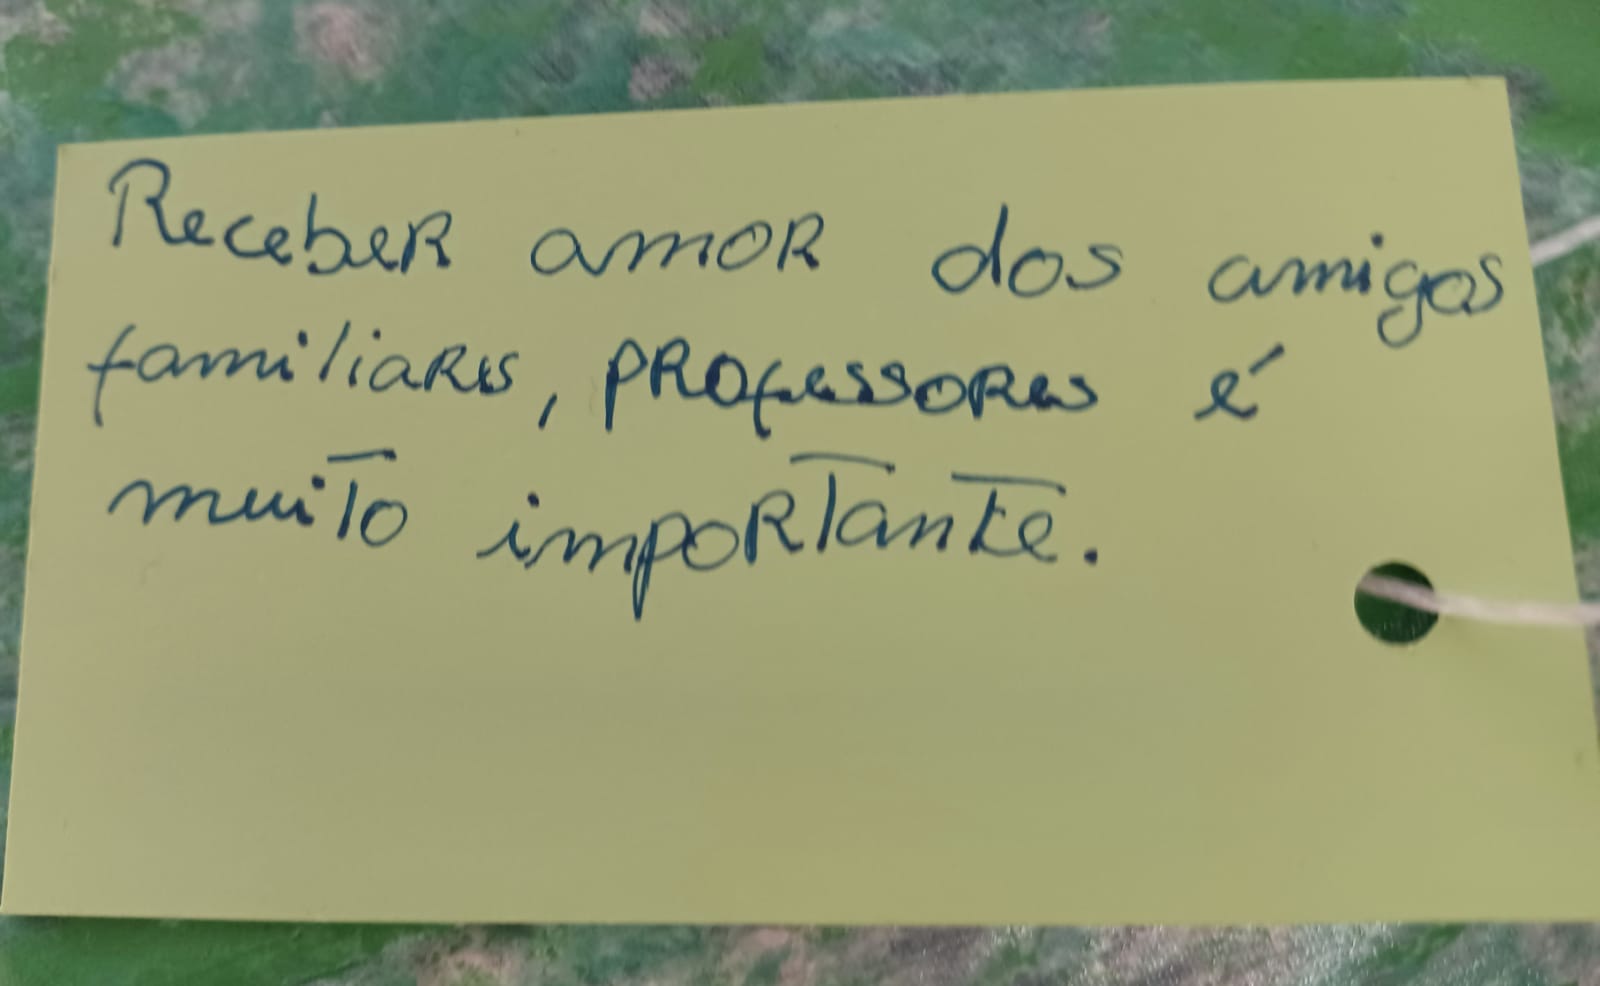 Receber amor dos amigos
familiares, professores é
muito importante.